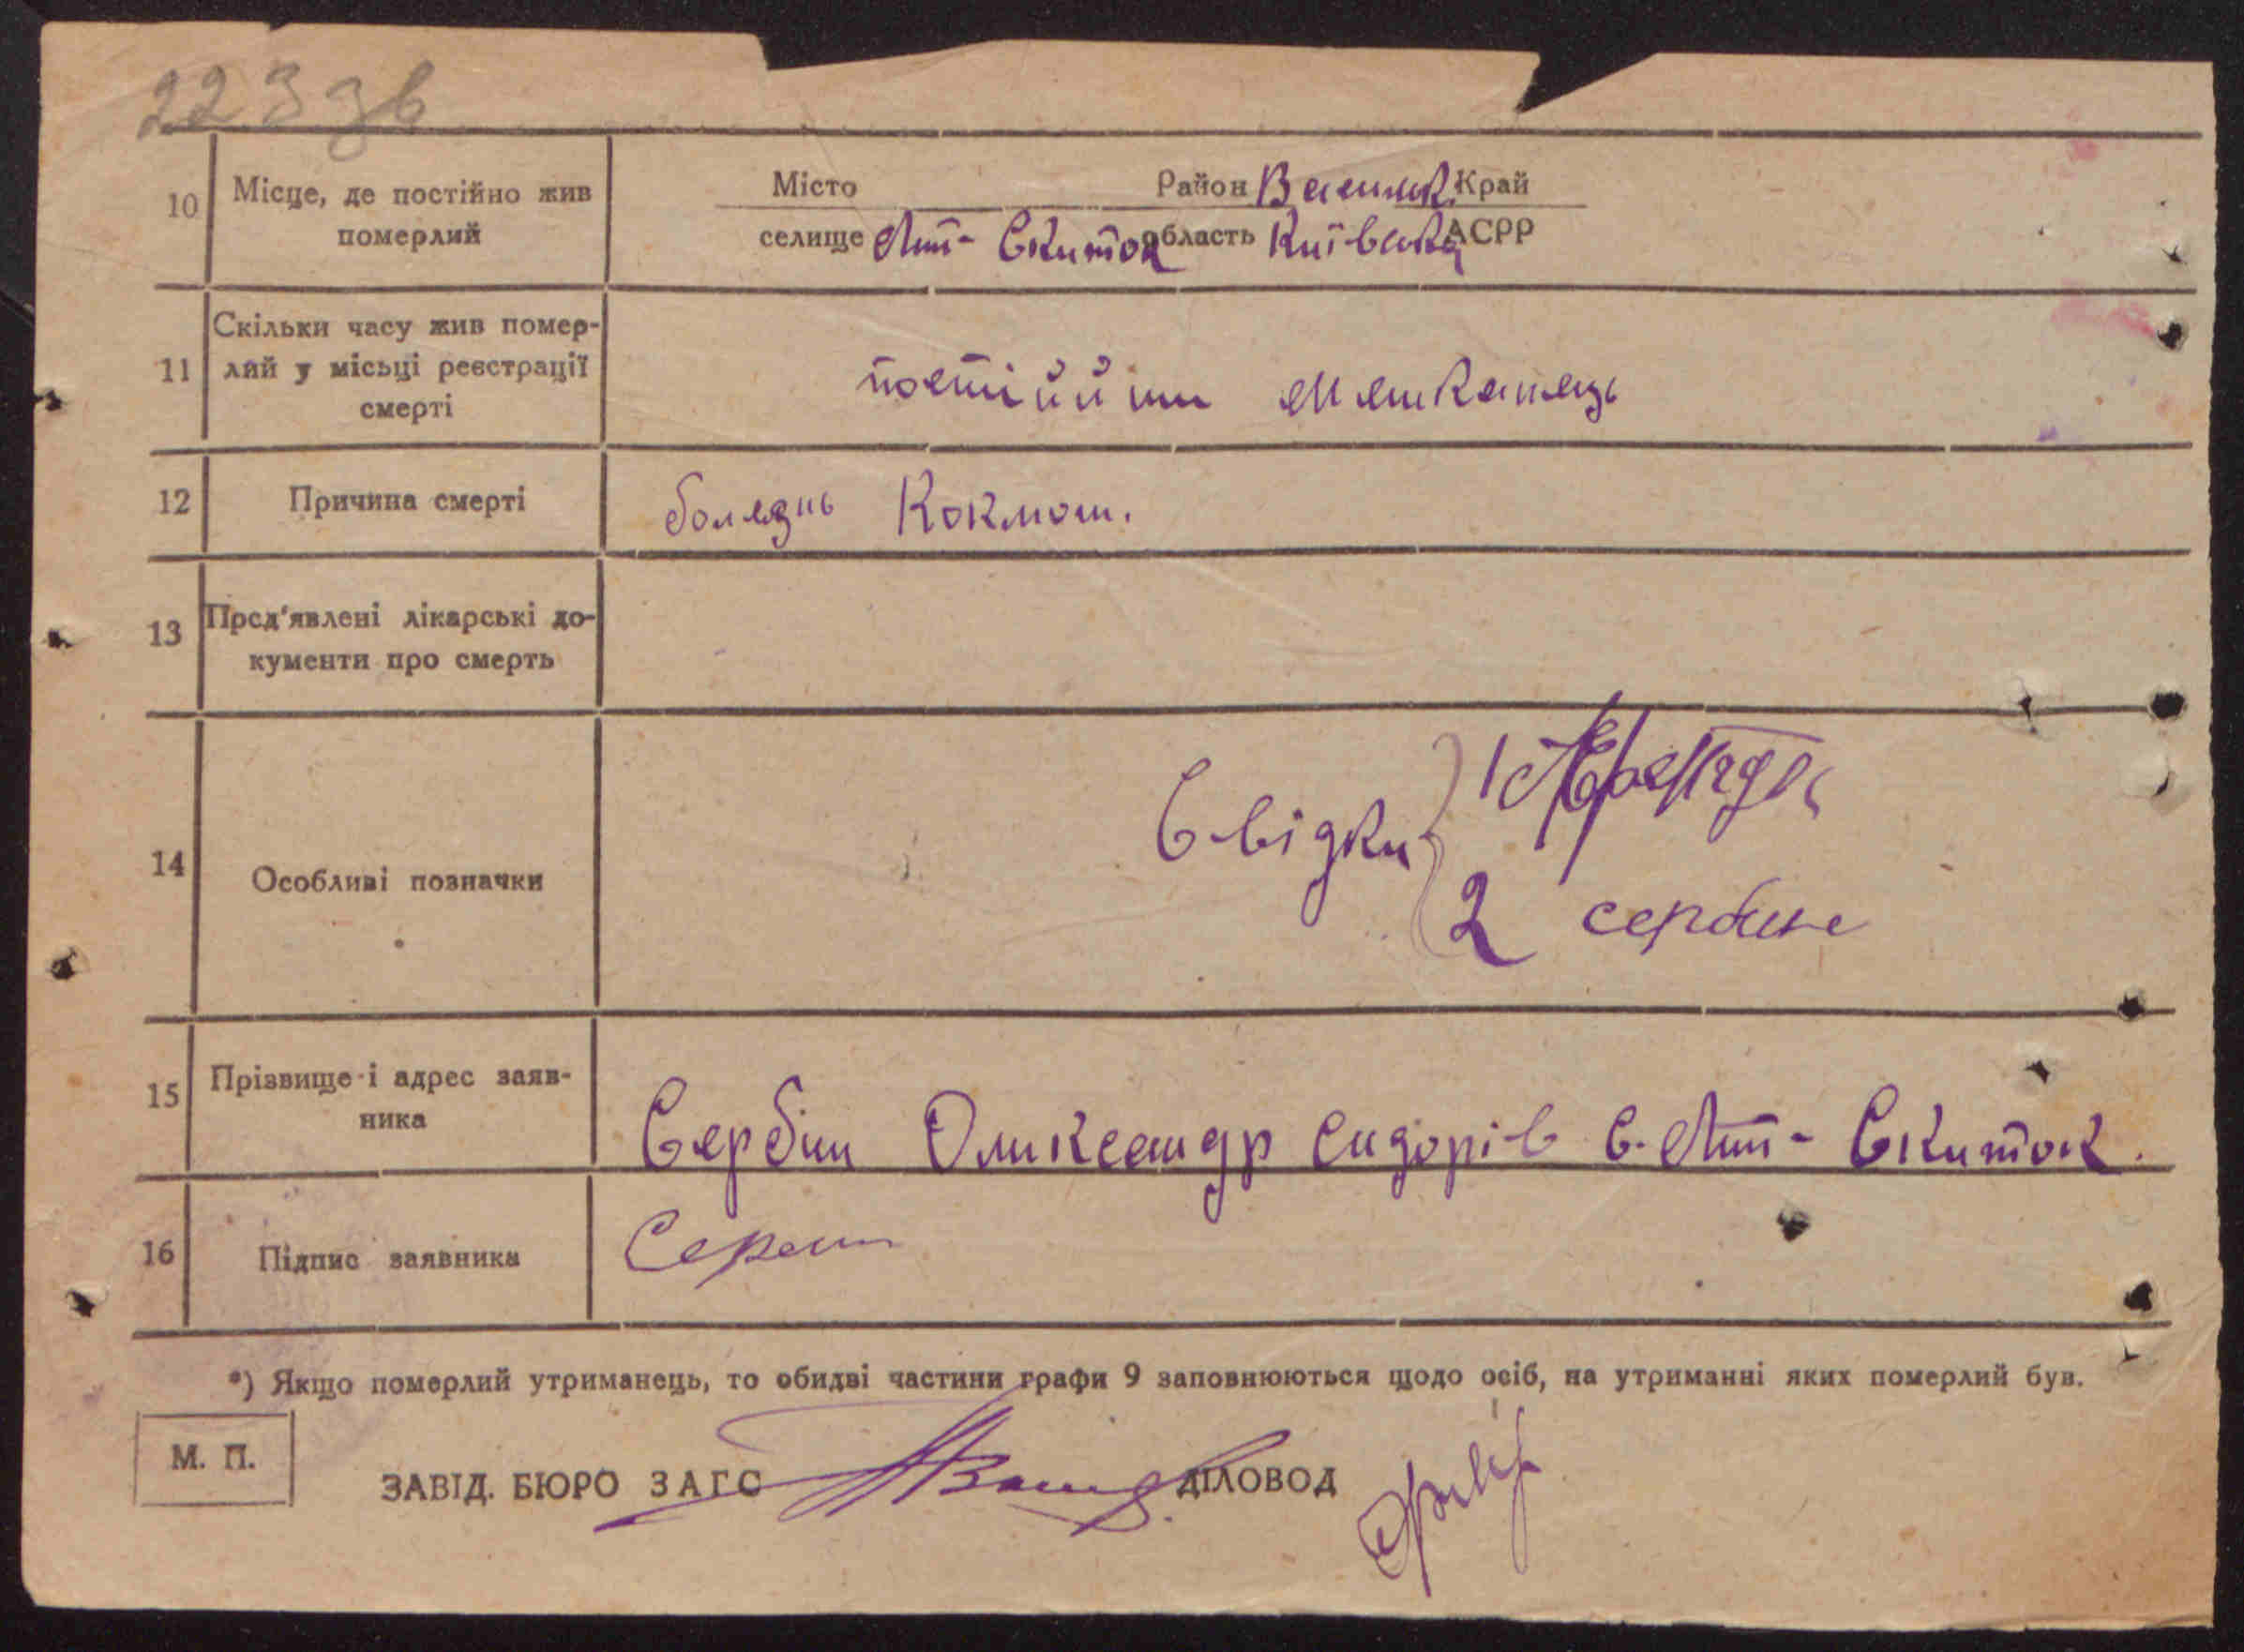 223 зв
10 Місце, де постійно жив померлий
Місто Район Васильк. Край
селище Лип-Скиток область Київська АСРР
11 Скільки часу жив помер-
лий у місьці реєстрації
смерті
постійний мешканець
12 Причина смерті болезнь Коклюш.
13 Пред'явлені лікарські до-
кументи про смерть
14 Особливі позначки
Свідки 1
2 сербине
15 Прізвище і адрес заяв-
ника
Сербин Олександр Сидорів с. Лип-Скиток.
16 Підпис заявника
*) Якщо померлий утриманець, то обидві частини графи 9 заповнюються щодо осіб, на утриманні яких померлий був.
М. П.
ЗАВІД. БЮРО ЗАГС ДІЛОВОД